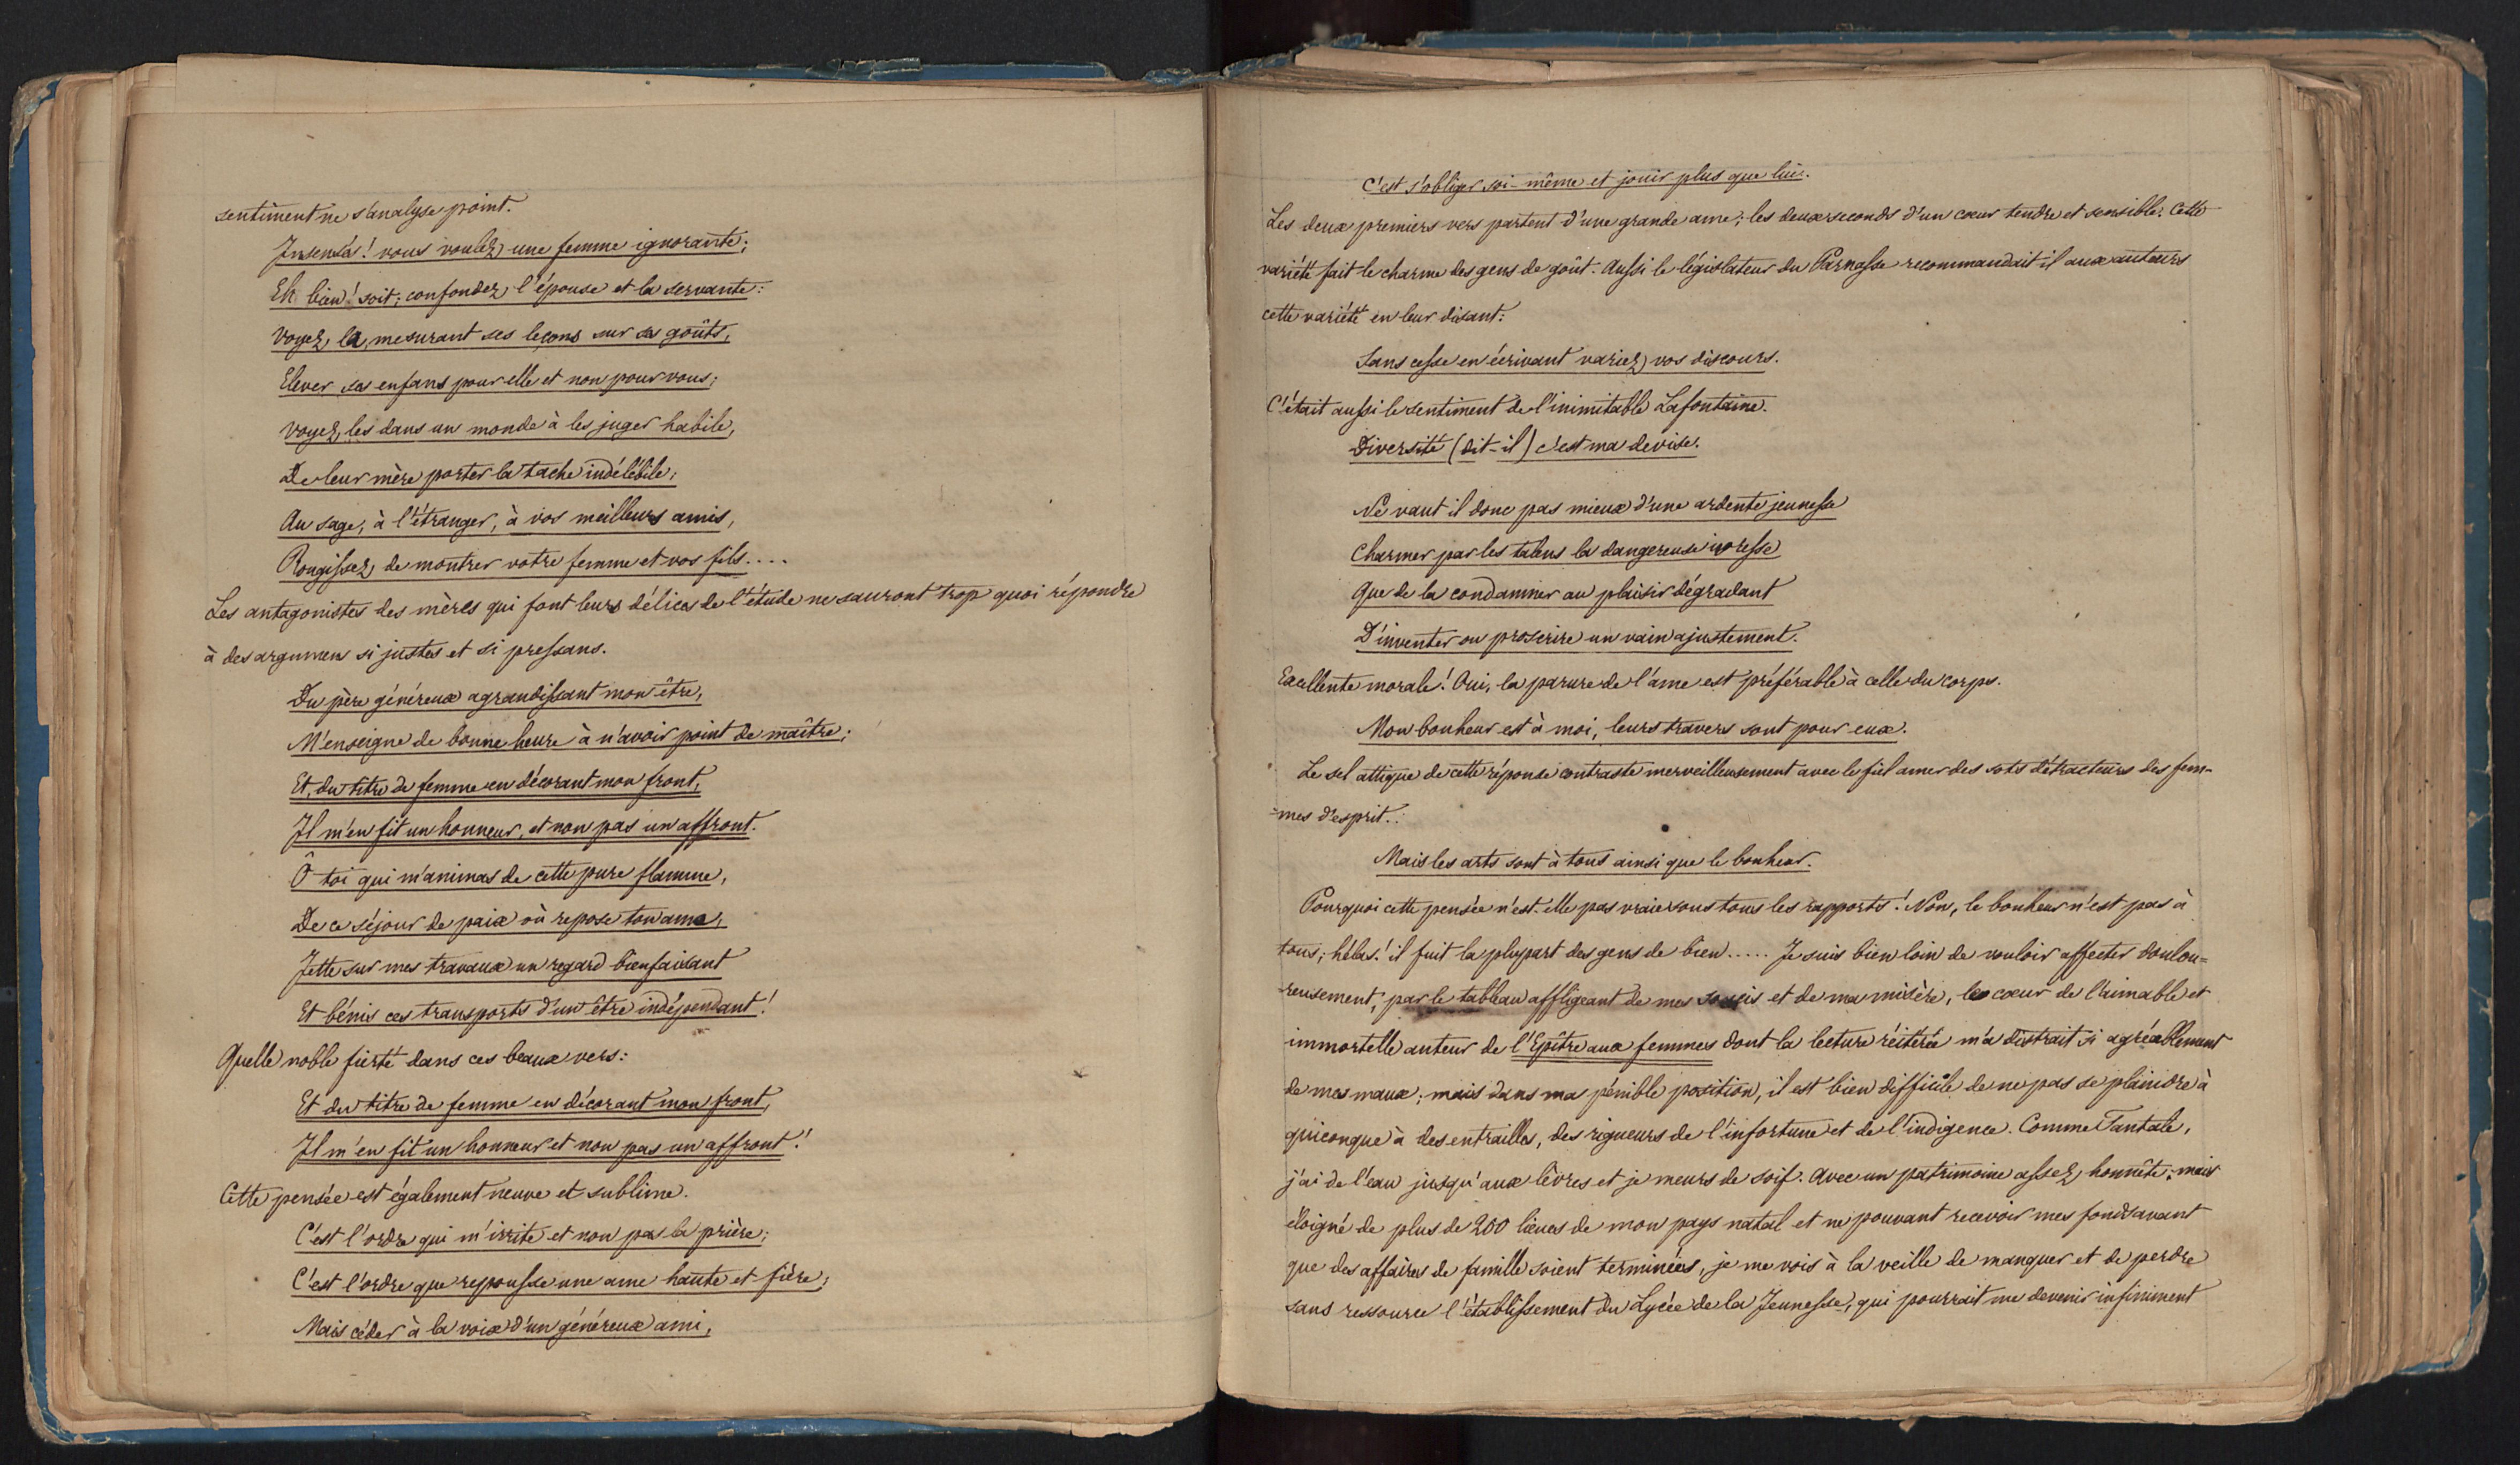 sentiment ne s'analyse point.
Insensés! vous voulez une femme ignorante;
Eh bien! soit; confondez l'épouse et la servante:
Voyez la, mesurant ses leçons sur ses goûts,
Elever ses enfans pour elle et non pour vous;
Voyez, les dans un monde à les juger habile,
De leur mère porter la tache indélébile;
Au sage, à l'étranger, à vos meilleurs amis,
Rougissez, de montrer votre femme et vos fils....
Les antagonistes des mères qui font leurs délices de l'étude ne sauront trop quoi répondre
à des argumens si justes et si pressans.
Du père généreux agrandissant mon être,
M'enseigne de bonne heure à n'avoir point de maître;
Et, du titre de femme en décorant mon front,
Il m'en fit un honneur, et non pas un affront.
Ô toi qui m'animas de cette pure flamme,
De ce séjour de paix où repose ton ame,
Jette sur mes travaux un regard bienfaisant
Et bénis ces transports d'un être indépendant!
Quelle noble fierté dans ces beaux vers:
Et du titre de femme en décorant mon front,
Il m'en fit un honneur et non pas un affront!
Cette pensée est également neuve et sublime.
C'est l'ordre qui m'irrite et non pas la prière;
C'est l'ordre que repousse une ame haute et fière;
Mais céder à la voix d'un généreux ami,
C'est s'obliger soi-même et jouir plus que lui.
Les deux premiers vers partent d'une grande ame; les deux seconds d'un cœur tendre et sensible. Cette
variété fait le charme des gens de goût. Aussi le législateur du Parnasse recommandait il aux auteurs
cette variété en leur disant:
Sans cesse en écrivant variez vos discours.
C'était aussi le sentiment de l'inimitable Lafontaine.
Diversité (dit-il) c'est ma devise.
Ne vaut il donc pas mieux d'une ardente jeunesse
Charmer par les talens la dangereuse ivresse
Que de la condamner au plaisir dégradant
D'inventer ou proscrire un vain ajustement.
Excellente morale! Oui, la parure de l'ame est préférable à celle du corps.
Mon bonheur est à moi, leurs travers sont pour eux.
Le sel attique de cette réponse contraste merveilleusement avec le fiel amer des sots détracteurs des fem-
-mes d'esprit..
Mais les arts sont à tous ainsi que le bonheur.
Pourquoi cette pensée n'est-elle pas vraie sous tous les rapports! Non, le bonheur n'est pas à
tous; hélas! il fuit la plupart des gens de bien..... Je suis bien loin de vouloir affecter doulou=
reusement, par le tableau affligeant de mes soucis et de ma misère, le cœur de l'aimable et
immortelle auteur de l'Epître aux femmes dont la lecture réitérée m'a distrait si agréablement
de mes maux; mais dans ma pénible position, il est bien difficile de ne pas se plaindre à
quiconque à des entrailles, des rigueurs de l'infortune et de l'indigence. Comme Tantale,
j'ai de l'eau jusqu'aux lèvres et je meurs de soif. Avec un patrimoine assez honnête; mais
éloigné de plus de 200 lieues de mon pays natal et ne pouvant recevoir mes fonds avant
que des affaires de famille soient terminées, je me vois à la veille de manquer et de perdre
sans ressource l'établissement du Lycée de la Jeunesse, qui pourrait me devenir infiniment